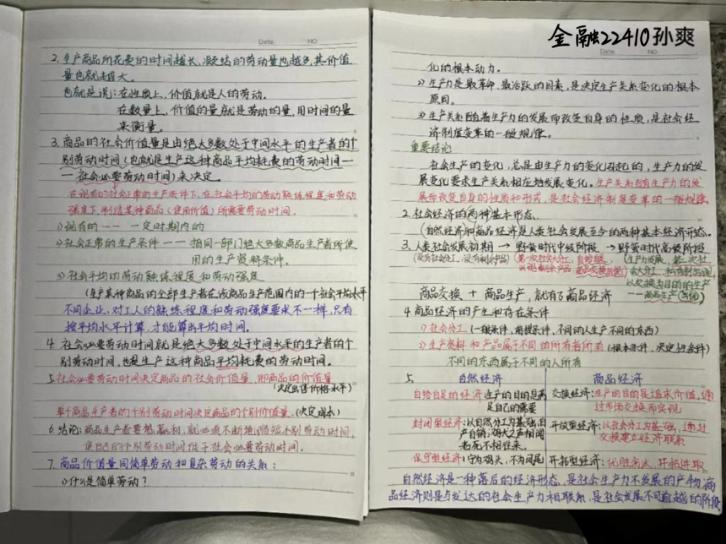 2. 生产商品所花费的时间越长,凝结的劳动量也越多,其价值
量也就越大。
也就是说:在性质上,价值就是人的劳动。
在数量上,价值的量就是劳动的量,用时间的量
来衡量。
3. 商品的社会价值量是由绝大多数处于中间水平的生产者的个
别劳动时间(也就是生产这种商品平均耗费的劳动时间—
—社会必要劳动时间)来决定。
在现有的社会正常的生产条件下,在社会平均的劳动熟练程度和劳动
强度下,制造某种商品(使用价值)所需要劳动时间。
1)现有的——一定时期内的
2)社会正常的生产条件——指同一部门绝大多数商品生产者所使
用的生产资料条件。
3)社会平均的劳动熟练程度和劳动强度
(生产某种商品的全部生产者在该商品生产范围内的一个社会平均水平
不同企业,对工人的熟练程度和劳动强度要求不一样,只有
按平均水平计算,才能算出平均时间。
4. 社会必要劳动时间就是绝大多数处于中间水平的生产者的个
别劳动时间,也是生产这种商品平均耗费的劳动时间。
5. 社会必要劳动时间决定商品的社会价值量,即商品的价值量
(决定出售价格水平)
单个商品生产者的个别劳动时间决定商品的个别价值量。(决定成本)
6. 结论:商品生产者要想赢利,就必须不断地缩短个别劳动时间,
使自己的个别劳动时间低于社会必要劳动时间。
7. 商品价值量同简单劳动和复杂劳动的关系:
1)什么是简单劳动?
金融22410孙爽
化的根本动力。
2)生产力是最革命、最活跃的因素,是决定生产关系变化的根本
原因。
3)生产关系随着生产力的发展而改变自身的性质,是社会经
济制度变革的一般规律。
重要结论
社会生产的变化,总是由生产力的变化引起的,生产力的发
展变化要求生产关系相应地发展变化。生产关系随着生产力的发
展而改变自身的性质和形式,是社会经济制度变革的一般规律
2. 社会经济的两种基本形态。
(自然经济和商品经济是人类社会发展至今的两种基本经济形态。
3. 人类社会发展初期→野蛮时代中级阶段→野蛮时代高级阶段
(没有社会分工,没有剩余产品) (第一次社会大分工,
(生产力发展,第二次社
会大分工,
以交换为目的的生产
——商品生产
商品交换+商品生产,就有了商品经济
4. 商品经济的产生和存在条件
1)社会分工(一般条件、前提条件,不同的人生产不同的东西)
2)生产资料和产品属于不同的所有者所有(根本条件、决定性条件)
不同的东西属于不同的人所有
5. 自然经济 商品经济
自给自足的经济:生产的目的是满 交换经济:生产的目的是追求价值,通
足自己的需要 过市场交换而实现
封闭型经济:以自然分工为基础,自 开放型经济:以社会分工为基础,通过
产自销,鸡犬之声相闻 交换建立经济联系
老死不相往来。
保守型经济:宁为鸡头,不为凤尾 开拓型经济:优胜劣汰,开拓进取
自然经济是一种落后的经济形态,是社会生产力不发展的产物,商
品经济则是与发达的社会生产力相联系,是社会发展不可逾越的阶段